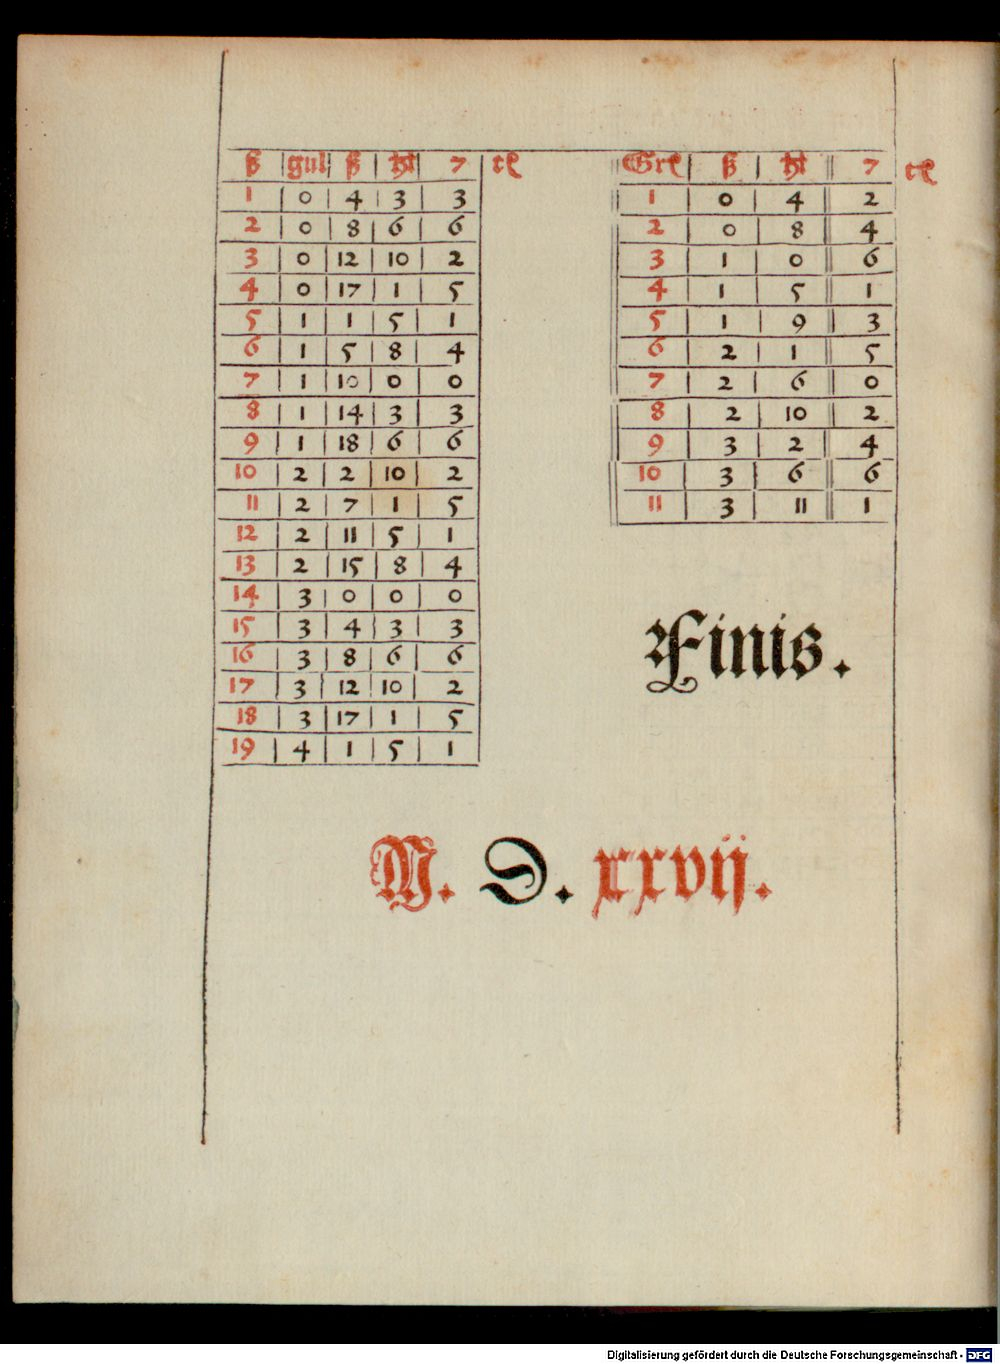 ß gul ß hl 7 tl
1 0 4 3 3
2 0 8 6 6
3 0 12 10 2
4 0 17 1 5
5 1 1 5 1
6 1 5 8 4
7 1 10 0 0
8 1 14 3 3
9 1 18 6 6
10 2 2 10 2
11 2 7 1 5
12 2 11 5 1
13 2 15 8 4
14 3 0 0 0
15 3 4 3 3
16 3 8 6 6
17 3 12 10 2
18 3 17 1 5
19 4 1 5 1
Grl ß hl 7 tl
1 0 4 2
2 0 8 4
3 1 0 6
4 1 5 1
5 1 9 3
6 2 1 5
7 2 6 0
8 2 10 2
9 3 2 4
10 3 6 6
11 3 11 1
Finis.
M. D. xxvij.
Digitalisierung gefördert durch die Deutsche Forschungsgemeinschaft - DFG